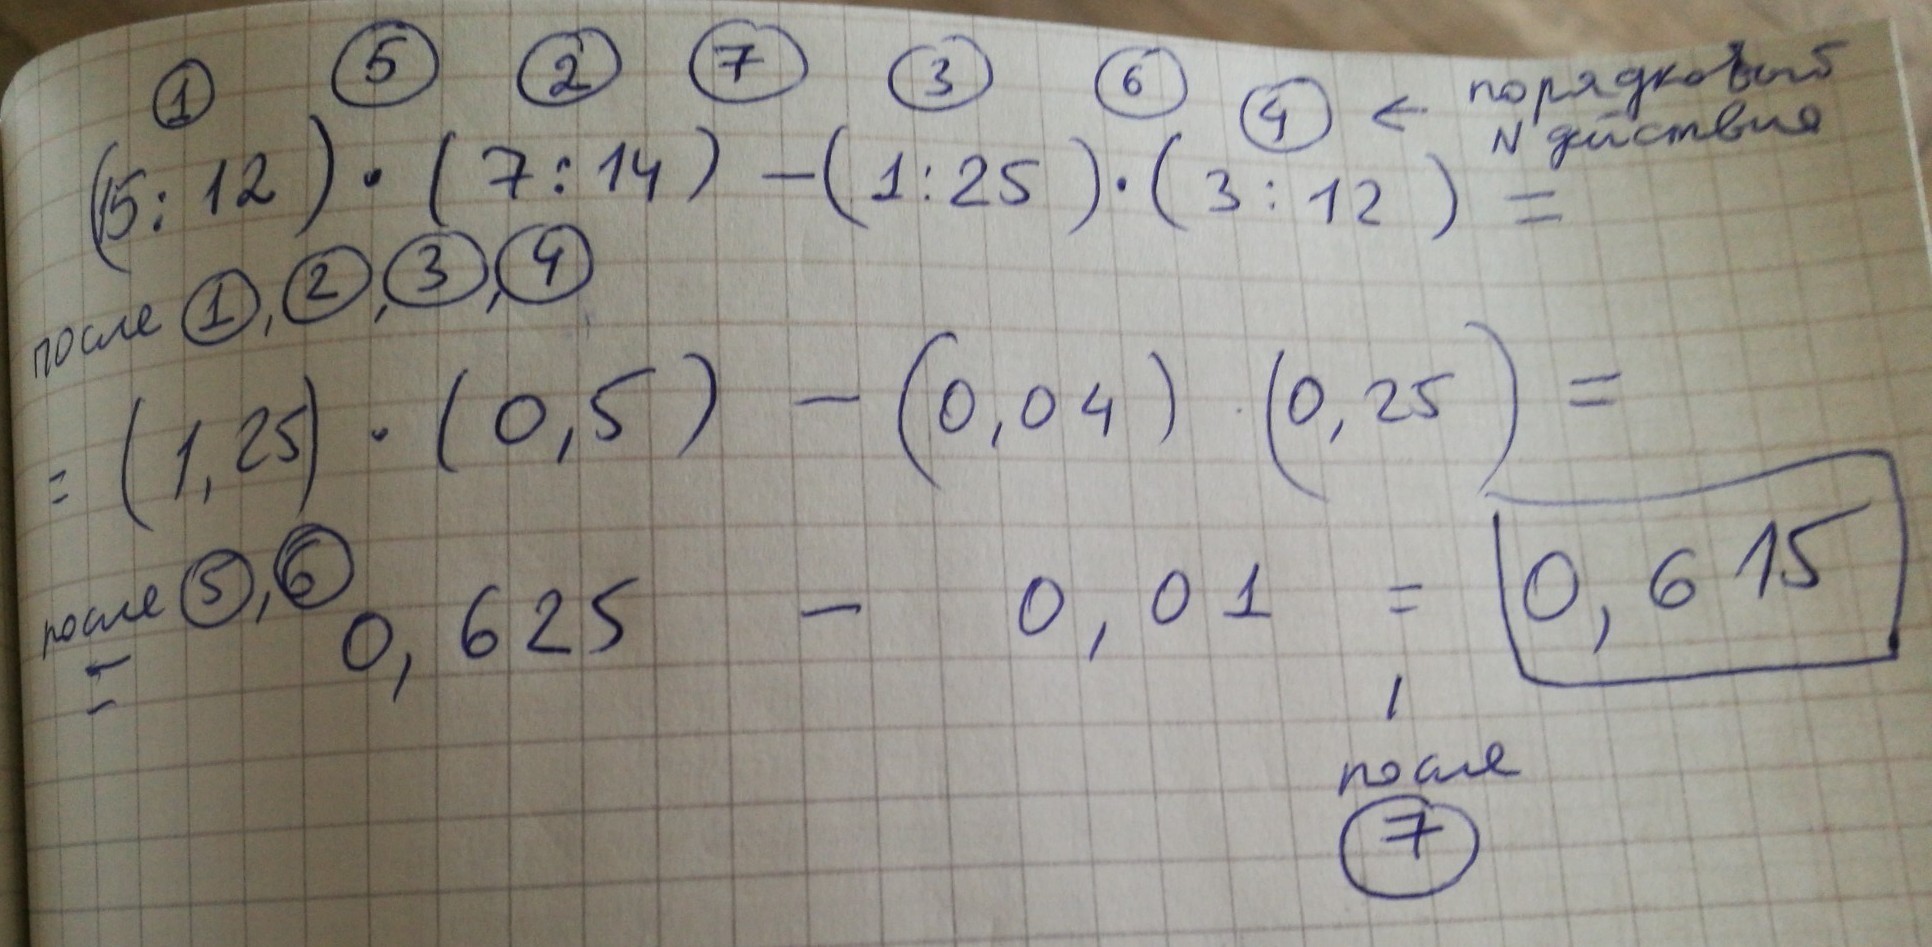 ① ⑤ ② ⑦ ③ ⑥ ④ ← порядковый
N действия
(15:12)·(7:14)-(1:25)·(3:12)=
после ①,②,③,④
=(1,25)·(0,5)-(0,04)·(0,25)=
после ⑤,⑥
= 0,625 - 0,01 = 0,615
после
⑦